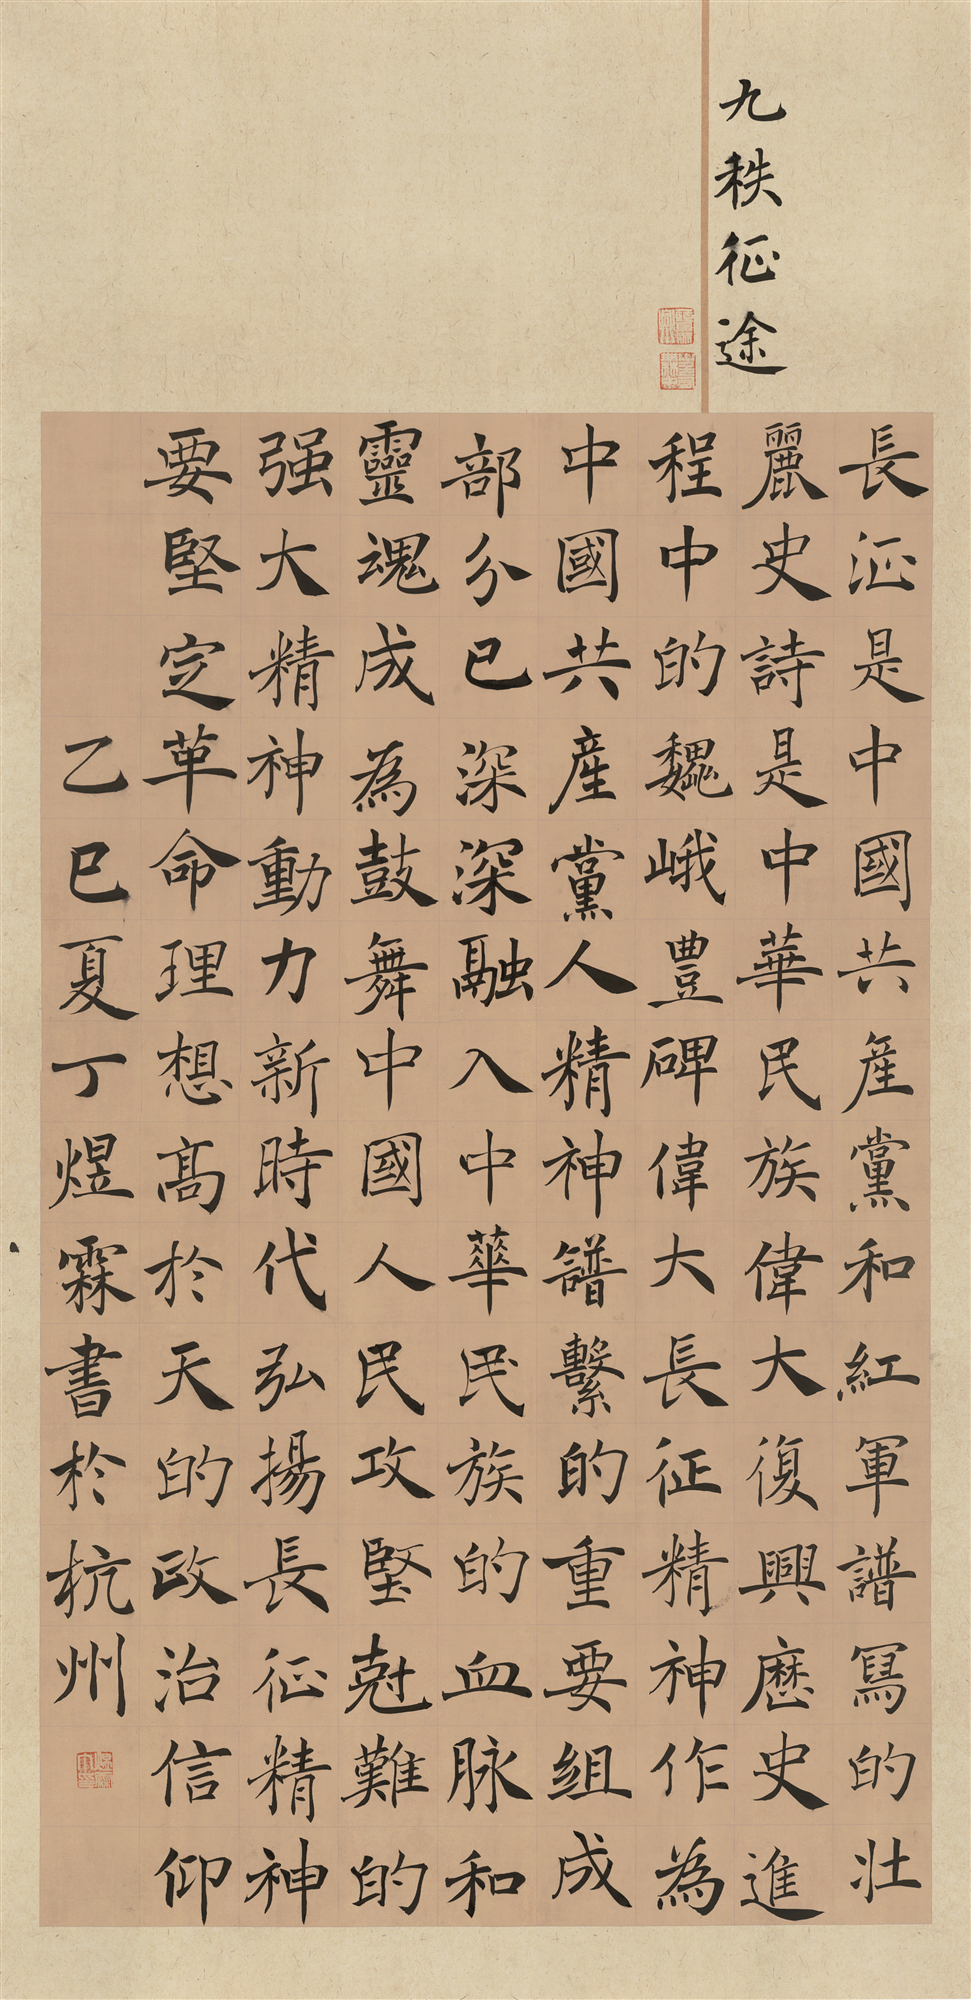 九秩征途
長征是中國共產黨和紅軍譜寫的壯
麗史詩是中華民族偉大復興歷史進
程中的巍峨豐碑偉大長征精神作為
中國共產黨人精神譜繫的重要組成
部分已深深融入中華民族的血脉和
靈魂成為鼓舞中國人民攻堅尅難的
强大精神動力新時代弘揚長征精神
要堅定革命理想高於天的政治信仰
乙巳夏丁煜霖書於杭州